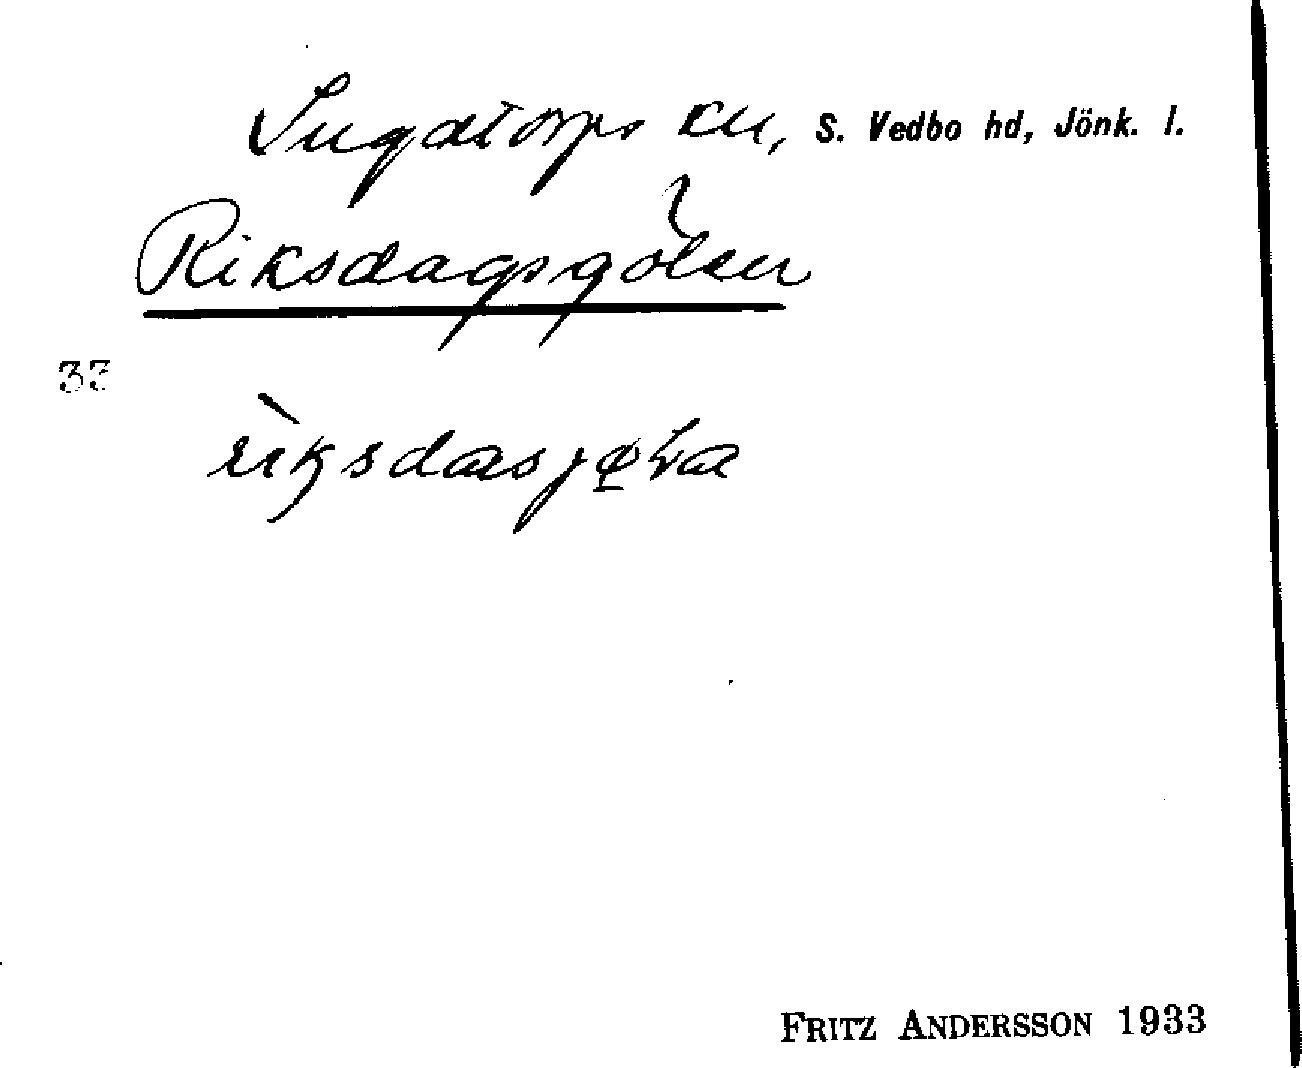 Ingatorps sn, S. Vedbo hd, Jönk. l.
Riksdagsgölen
33
FRITZ ANDERSSON 1933